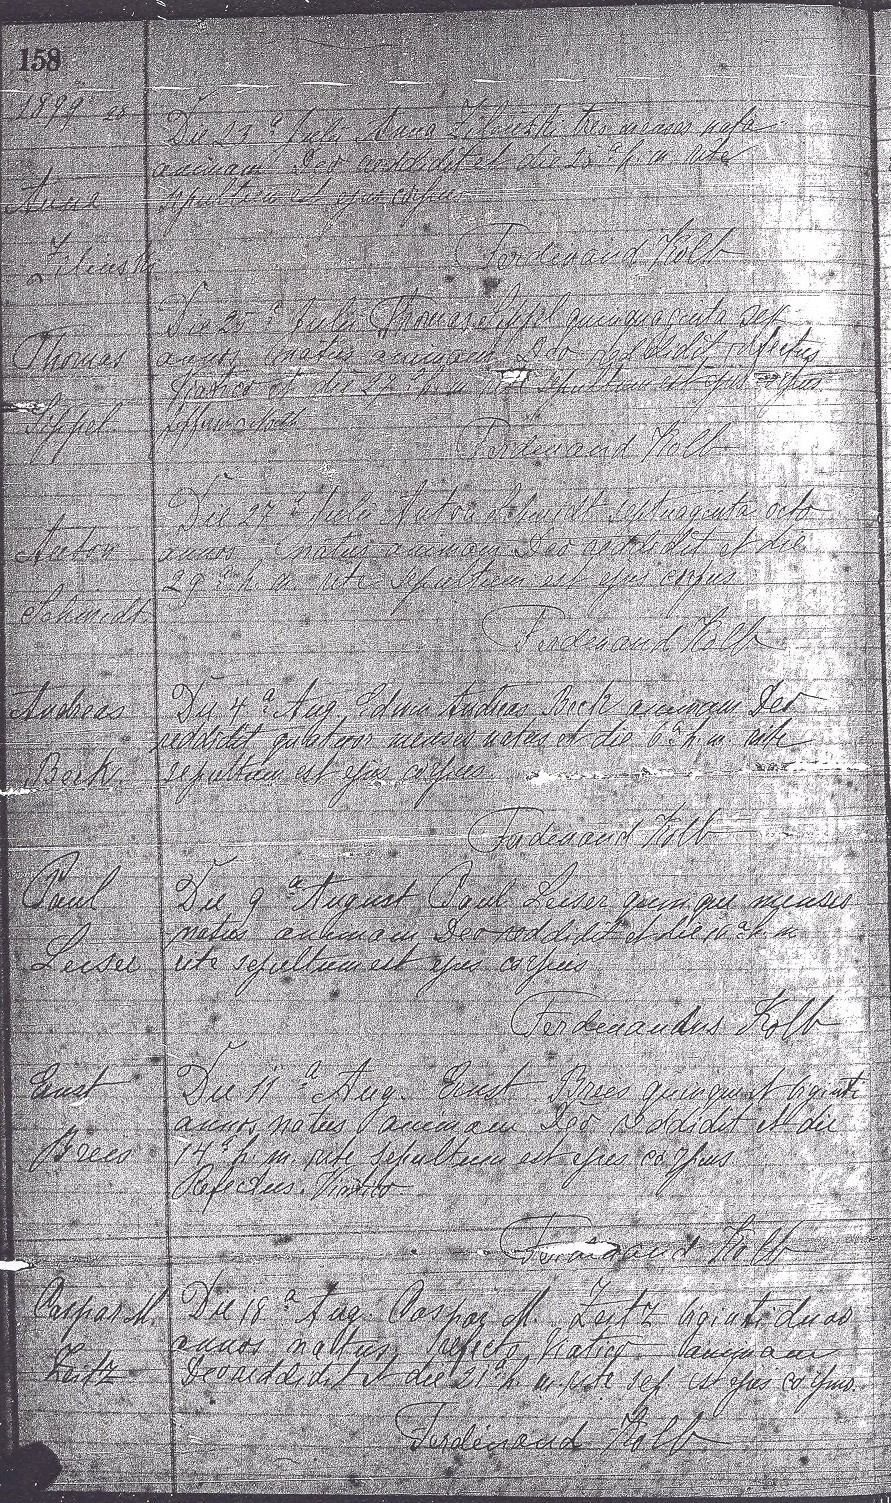 158
1899
Die 23ª Julii Anna Zilinski tres menses nata
animam Deo reddidit et die 25ª h. m. rite
Anna
sepultum est ejus corpus
Zilinski
Ferdinand Kolb
Die 25ª Julii Thomas Sippel quinquaginta sex
Thomas
annos natus animam Deo reddidit refectus
Viatico et die 28ª h. m. rite sepultum est ejus corpus
Sippel
Ferdinand Kolb
Die 27ª Julii Anton Schmidt septuaginta octo
Anton
annos natus animam Deo reddidit et die
29ª h. m. rite sepultum est ejus corpus
Schmidt
Ferdinand Kolb
Andreas
Die 4ª Aug. Edwin Andreas Beck animam Deo
reddidit quatuor menses natus et die 6ª h. m. rite
Beck
sepultum est ejus corpus
Ferdinand Kolb
Paul
Die 9ª August Paul Leiser quinque menses
natus animam Deo reddidit et die 10ª h. m.
Leiser
rite sepultum est ejus corpus
Ferdinandus Kolb
Ernst
Die 11ª Aug. Ernst Brees quinque et viginti
annos natus animam Deo reddidit et die
Brees
14ª h. m. rite sepultum est ejus corpus
Refectus Viatico
Ferdinand Kolb
Caspar M.
Die 18ª Aug. Caspar M. Zeitz viginti duos
annos natus, refectus Viatico animam
Zeitz
Deo reddidit et die 21ª h. m. rite sep. est ejus corpus.
Ferdinand Kolb